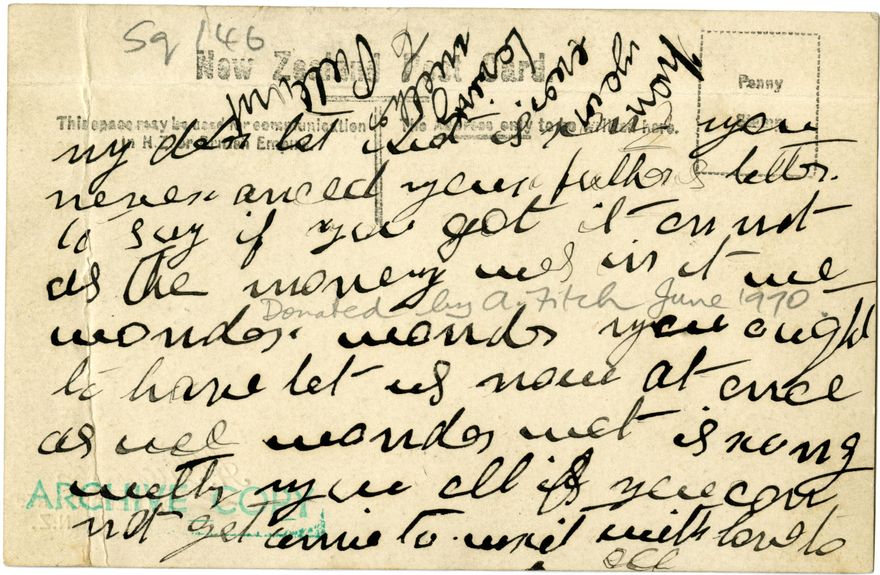 Sg 146
New Zealand Post Card
Penny
Stamp
This space may be used for communication
in N.Z. or
The Address only to be written here.
my de let is you
never anced your fathers letter
to say if you got it or not
as the money wes in it we
Donated by A. Fitch June 1970
wonder wonder you ought
to have let us now at once
as wee wonder wet is rong
with you all if you can
ARCHIVE COPY
not get to writ with love to
all
from
your